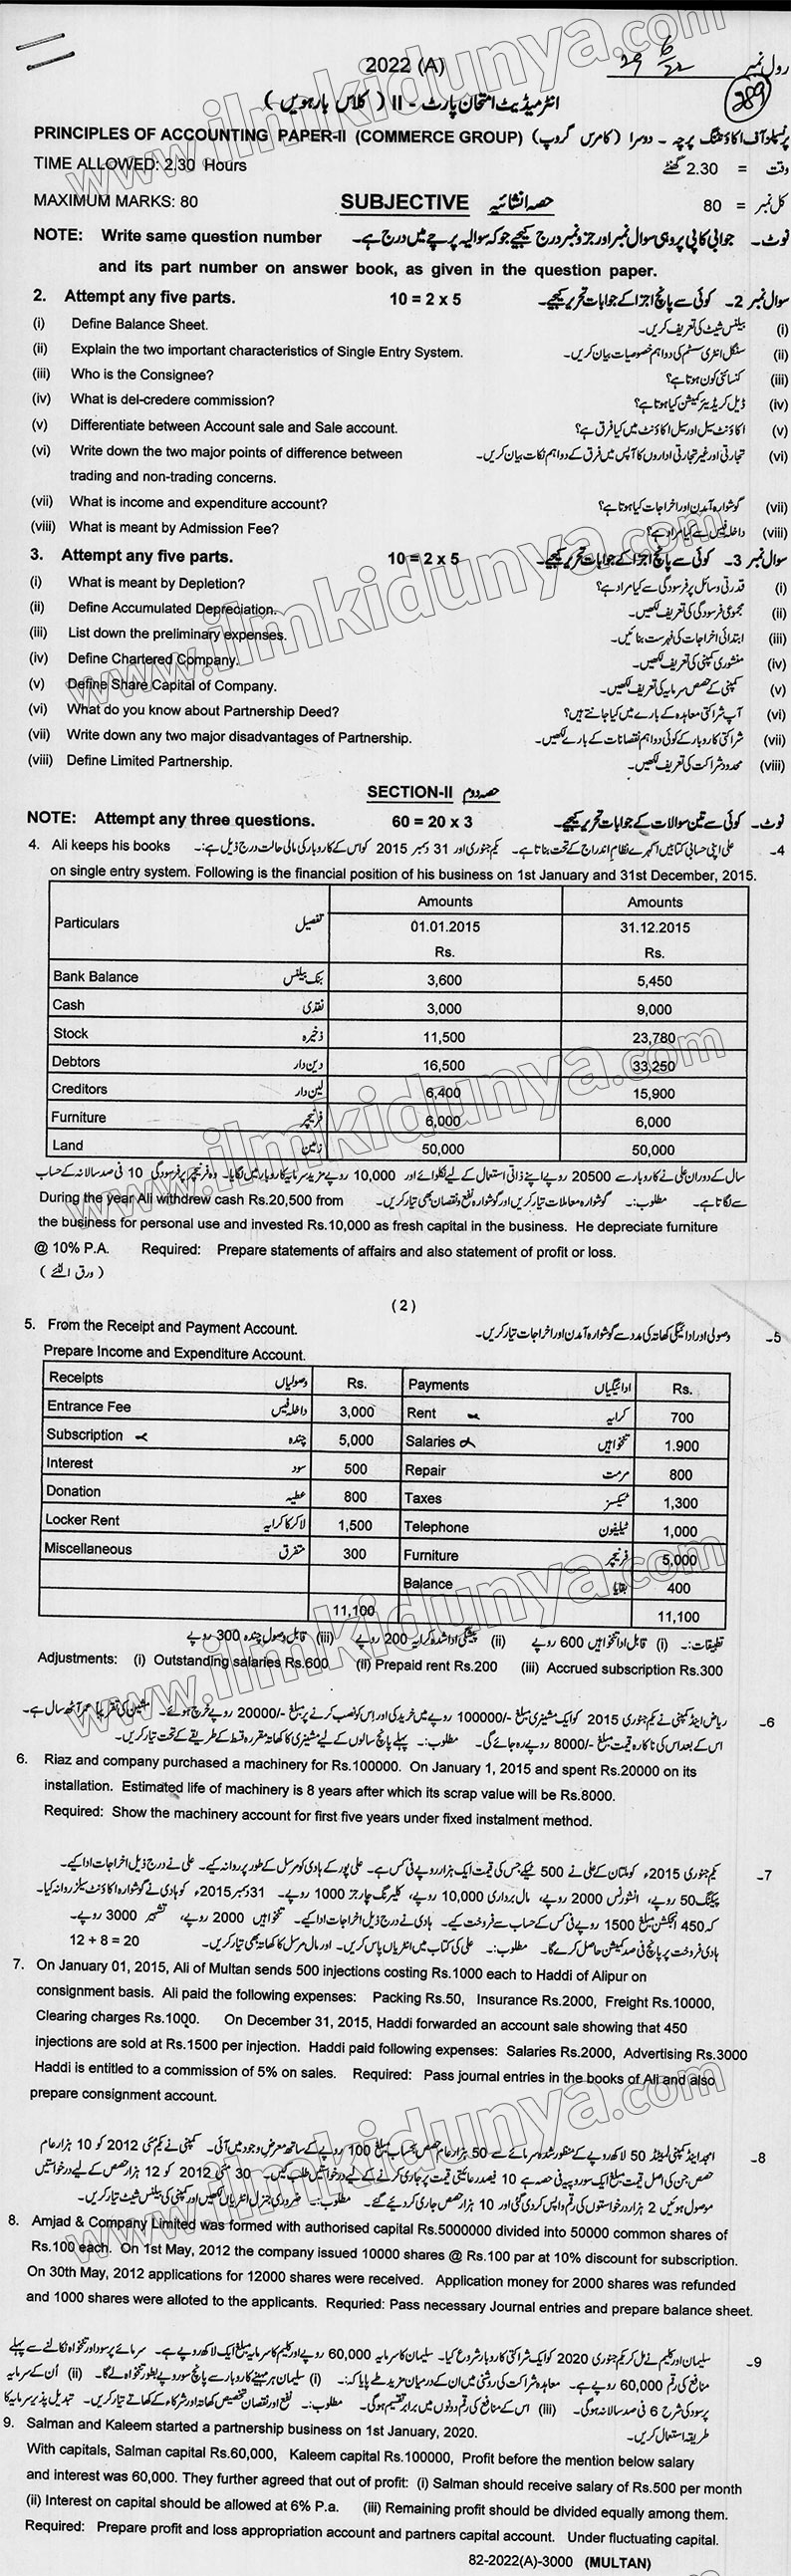 2022 (A)
رول نمبر
289
انٹرمیڈیٹ امتحان پارٹ - II ( کلاس بارھویں )
PRINCIPLES OF ACCOUNTING PAPER-II (COMMERCE GROUP) پرنسپلز آف اکاؤنٹنگ پرچہ - دوسرا ( کامرس گروپ )
TIME ALLOWED: 2.30 Hours وقت = 2.30 گھنٹے
MAXIMUM MARKS: 80 SUBJECTIVE حصہ انشائیہ کل نمبر = 80
NOTE: Write same question number نوٹ۔ جوابی کاپی پر وہی سوال نمبر اور جزو نمبر درج کیجیے جو کہ سوالیہ پرچے میں درج ہے۔
and its part number on answer book, as given in the question paper.
2. Attempt any five parts. 10 = 2 x 5 سوال نمبر 2۔ کوئی سے پانچ اجزا کے جوابات تحریر کیجیے۔
(i) Define Balance Sheet. بیلنس شیٹ کی تعریف کریں۔ (i)
(ii) Explain the two important characteristics of Single Entry System. سنگل انٹری سسٹم کی دو اہم خصوصیات بیان کریں۔ (ii)
(iii) Who is the Consignee? کنسائنی کون ہوتا ہے؟ (iii)
(iv) What is del-credere commission? ڈیل کریڈیر کمیشن کیا ہوتا ہے؟ (iv)
(v) Differentiate between Account sale and Sale account. اکاؤنٹ سیل اور سیل اکاؤنٹ میں کیا فرق ہے؟ (v)
(vi) Write down the two major points of difference between تجارتی اور غیر تجارتی اداروں کا آپس میں فرق کے دو اہم نکات بیان کریں۔ (vi)
trading and non-trading concerns.
(vii) What is income and expenditure account? گوشوارہ آمدن اور اخراجات کیا ہوتا ہے؟ (vii)
(viii) What is meant by Admission Fee? داخلہ فیس سے کیا مراد ہے؟ (viii)
3. Attempt any five parts. 10 = 2 x 5 سوال نمبر 3۔ کوئی سے پانچ اجزا کے جوابات تحریر کیجیے۔
(i) What is meant by Depletion? قدرتی وسائل پر فرسودگی سے کیا مراد ہے؟ (i)
(ii) Define Accumulated Depreciation. مجموعی فرسودگی کی تعریف لکھیں۔ (ii)
(iii) List down the preliminary expenses. ابتدائی اخراجات کی فہرست بنائیں۔ (iii)
(iv) Define Chartered Company. منشوری کمپنی کی تعریف لکھیں۔ (iv)
(v) Define Share Capital of Company. کمپنی کے حصص سرمایہ کی تعریف لکھیں۔ (v)
(vi) What do you know about Partnership Deed? آپ شراکتی معاہدہ کے بارے میں کیا جانتے ہیں؟ (vi)
(vii) Write down any two major disadvantages of Partnership. شراکتی کاروبار کے کوئی دو اہم نقصانات کے بارے لکھیں۔ (vii)
(viii) Define Limited Partnership. محدود شراکت کی تعریف لکھیں۔ (viii)
SECTION-II حصہ دوم
NOTE: Attempt any three questions. 60 = 20 x 3 نوٹ۔ کوئی سے تین سوالات کے جوابات تحریر کیجیے۔
4. Ali keeps his books علی اپنی حسابی کتابیں اکہرے نظام اندراج کے تحت بناتا ہے۔ یکم جنوری اور 31 دسمبر 2015 کو اس کے کاروبار کی مالی حالت درج ذیل ہے:۔ 4۔
on single entry system. Following is the financial position of his business on 1st January and 31st December, 2015.
Particulars تفصیل Amounts 01.01.2015 Rs. Amounts 31.12.2015 Rs.
Bank Balance بنک بیلنس 3,600 5,450
Cash نقدی 3,000 9,000
Stock ذخیرہ 11,500 23,780
Debtors دین دار 16,500 33,250
Creditors لین دار 6,400 15,900
Furniture فرنیچر 6,000 6,000
Land زمین 50,000 50,000
سال کے دوران علی نے کاروبار سے 20500 روپے اپنے ذاتی استعمال کے لیے نکلوائے اور 10,000 روپے مزید سرمایہ کاروبار میں لگایا۔ وہ فرنیچر پر فرسودگی 10 فی صد سالانہ کے حساب
During the year Ali withdrew cash Rs.20,500 from سے لگاتا ہے۔ مطلوب:۔ گوشوارہ معاملات تیار کریں اور گوشوارہ نفع و نقصان بھی تیار کریں۔
the business for personal use and invested Rs.10,000 as fresh capital in the business. He depreciate furniture
@ 10% P.A. Required: Prepare statements of affairs and also statement of profit or loss.
( ورق الٹیے )
(2)
5. From the Receipt and Payment Account. وصولی اور ادائیگی کھاتہ کی مدد سے گوشوارہ آمدن اور اخراجات تیار کریں۔ 5۔
Prepare Income and Expenditure Account.
Receipts وصولیاں Rs. Payments ادائیگیاں Rs.
Entrance Fee داخلہ فیس 3,000 Rent کرایہ 700
Subscription چندہ 5,000 Salaries تنخواہیں 1.900
Interest سود 500 Repair مرمت 800
Donation عطیہ 800 Taxes ٹیکسز 1,300
Locker Rent لاکر کا کرایہ 1,500 Telephone ٹیلیفون 1,000
Miscellaneous متفرق 300 Furniture فرنیچر 5,000
Balance بقایا 400
11,100 11,100
تطبیقات:۔ (i) قابل ادا تنخواہیں 600 روپے (ii) پیشگی ادا شدہ کرایہ 200 روپے (iii) قابل وصول چندہ 300 روپے
Adjustments: (i) Outstanding salaries Rs.600 (ii) Prepaid rent Rs.200 (iii) Accrued subscription Rs.300
6۔ ریاض اینڈ کمپنی نے یکم جنوری 2015 کو ایک مشینری مبلغ -/100000 روپے میں خریدی اور اس کو نصب کرنے پر مبلغ -/20000 روپے خرچ ہوئے۔ مشین کی تقریباً عمر آٹھ سال ہے۔
اس کے بعد اس کی ناکارہ قیمت مبلغ -/8000 روپے رہ جائے گی۔ مطلوب:۔ پہلے پانچ سالوں کے لیے مشینری کا کھاتہ مقررہ قسط کے طریقے کے تحت تیار کریں۔
6. Riaz and company purchased a machinery for Rs.100000. On January 1, 2015 and spent Rs.20000 on its
installation. Estimated life of machinery is 8 years after which its scrap value will be Rs.8000.
Required: Show the machinery account for first five years under fixed instalment method.
7۔ یکم جنوری 2015ء کو ملتان کے علی نے 500 ٹیکے جس کی قیمت ایک ہزار روپے فی کس ہے۔ علی پور کے ہادی کو مرسل کے طور پر روانہ کیے۔ علی نے درج ذیل اخراجات ادا کیے۔
پیکنگ 50 روپے، انشورنس 2000 روپے، مال برداری 10,000 روپے، کلیئرنگ چارجز 1000 روپے۔ 31 دسمبر 2015ء کو ہادی نے گوشوارہ اکاؤنٹ سیلز روانہ کیا۔
کہ 450 انجکشن مبلغ 1500 روپے فی کس کے حساب سے فروخت کیے۔ ہادی نے درج ذیل اخراجات ادا کیے۔ تنخواہیں 2000 روپے، تشہیر 3000 روپے۔
ہادی فروخت پر پانچ فی صد کمیشن حاصل کرے گا۔ مطلوب:۔ علی کی کتاب میں انٹریاں پاس کریں۔ اور مال مرسل کا کھاتہ بھی تیار کریں۔ 12 + 8 = 20
7. On January 01, 2015, Ali of Multan sends 500 injections costing Rs.1000 each to Haddi of Alipur on
consignment basis. Ali paid the following expenses: Packing Rs.50, Insurance Rs.2000, Freight Rs.10000,
Clearing charges Rs.1000. On December 31, 2015, Haddi forwarded an account sale showing that 450
injections are sold at Rs.1500 per injection. Haddi paid following expenses: Salaries Rs.2000, Advertising Rs.3000
Haddi is entitled to a commission of 5% on sales. Required: Pass journal entries in the books of Ali and also
prepare consignment account.
8۔ امجد اینڈ کمپنی لمیٹڈ 50 لاکھ روپے کے منظور شدہ سرمائے سے 50 ہزار عام حصص بحساب مبلغ 100 روپے کے ساتھ معرض وجود میں آئی۔ کمپنی نے یکم مئی 2012 کو 10 ہزار عام
حصص جن کی اصل قیمت مبلغ ایک سو روپیہ فی حصہ ہے 10 فیصد رعایتی قیمت پر جاری کرنے کے لیے درخواستیں طلب کیں۔ 30 مئی 2012 کو 12 ہزار حصص کے لیے درخواستیں
موصول ہوئیں 2 ہزار درخواستوں کی رقم واپس کر دی گئی اور 10 ہزار حصص جاری کر دیے گئے۔ مطلوب:۔ ضروری جنرل انٹریاں لکھیں اور کمپنی کی بیلنس شیٹ تیار کریں۔
8. Amjad & Company Limited was formed with authorised capital Rs.5000000 divided into 50000 common shares of
Rs.100 each. On 1st May, 2012 the company issued 10000 shares @ Rs.100 par at 10% discount for subscription.
On 30th May, 2012 applications for 12000 shares were received. Application money for 2000 shares was refunded
and 1000 shares were alloted to the applicants. Requried: Pass necessary Journal entries and prepare balance sheet.
9۔ سلیمان اور کلیم نے مل کر یکم جنوری 2020 کو ایک شراکتی کاروبار شروع کیا۔ سلیمان کا سرمایہ 60,000 روپے اور کلیم کا سرمایہ مبلغ ایک لاکھ روپے ہے۔ سرمائے پر سود اور تنخواہ نکالنے سے پہلے
منافع کی رقم 60,000 روپے ہے۔ معاہدہ شراکت کی روشنی میں ان کے درمیان مزید طے پایا کہ:۔ (i) سلیمان ہر مہینے کاروبار سے پانچ سو روپے بطور تنخواہ لے گا۔ (ii) اُن کے سرمایہ
پر سود کی شرح 6 فی صد سالانہ ہوگی۔ (iii) اس کے منافع کی رقم دونوں میں برابر تقسیم ہوگی۔ مطلوب:۔ نفع اور نقصان تخصیص کھاتہ اور شرکاء کے کھاتے تیار کریں۔ تبدیل پذیر سرمایہ کا
9. Salman and Kaleem started a partnership business on 1st January, 2020. طریقہ استعمال کریں۔
With capitals, Salman capital Rs.60,000, Kaleem capital Rs.100000, Profit before the mention below salary
and interest was 60,000. They further agreed that out of profit: (i) Salman should receive salary of Rs.500 per month
(ii) Interest on capital should be allowed at 6% P.a. (iii) Remaining profit should be divided equally among them.
Required: Prepare profit and loss appropriation account and partners capital account. Under fluctuating capital.
82-2022(A)-3000 (MULTAN)
www.ilmkidunya.com